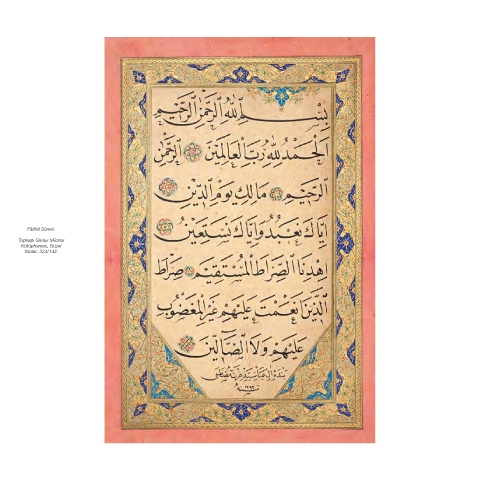 Fâtiha Sûresi.
Topkapı Sarayı Müzesi
Kütüphanesi, Güzel
Yazılar, 324/142.
بِسْمِ اللّٰهِ الرَّحْمٰنِ الرَّحِيمِ
اَلْحَمْدُ لِلّٰهِ رَبِّ الْعَالَمِينَ الرَّحْمٰنِ
الرَّحِيمِ مَالِكِ يَوْمِ الدِّينِ
اِيَّاكَ نَعْبُدُ وَاِيَّاكَ نَسْتَعِينُ
اِهْدِنَا الصِّرَاطَ الْمُسْتَقِيمَ صِرَاطَ
الَّذِينَ اَنْعَمْتَ عَلَيْهِمْ غَيْرِ الْمَغْضُوبِ
عَلَيْهِمْ وَلَا الضَّالِّينَ